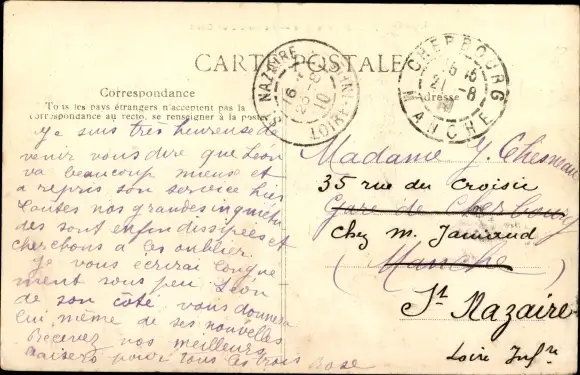 CARTE POSTALE
Correspondance
Tous les pays étrangers n'acceptent pas la
correspondance au recto, se renseigner à la poste
Adresse
ST NAZAIRE
LOIRE-INFRE
16
20-8
10
CHERBOURG
MANCHE
15 15
21-8
10
Je suis très heureuse de
venir vous dire que Léon
va beaucoup mieux et
a repris son service hier
toutes nos grandes inquiétu
des sont enfin dissipées et
cherchons à les oublier
Je vous écrirai longue
ment sous peu Léon
de son coté vous donnera
lui même de ses nouvelles
Recevez nos meilleurs
baisers pour tous les trois Rose
Madame J. Chesneau
35 rue du Croisic
Gare de Cherbourg
chez M. Jamaud
(Manche)
St Nazaire
Loire Infre